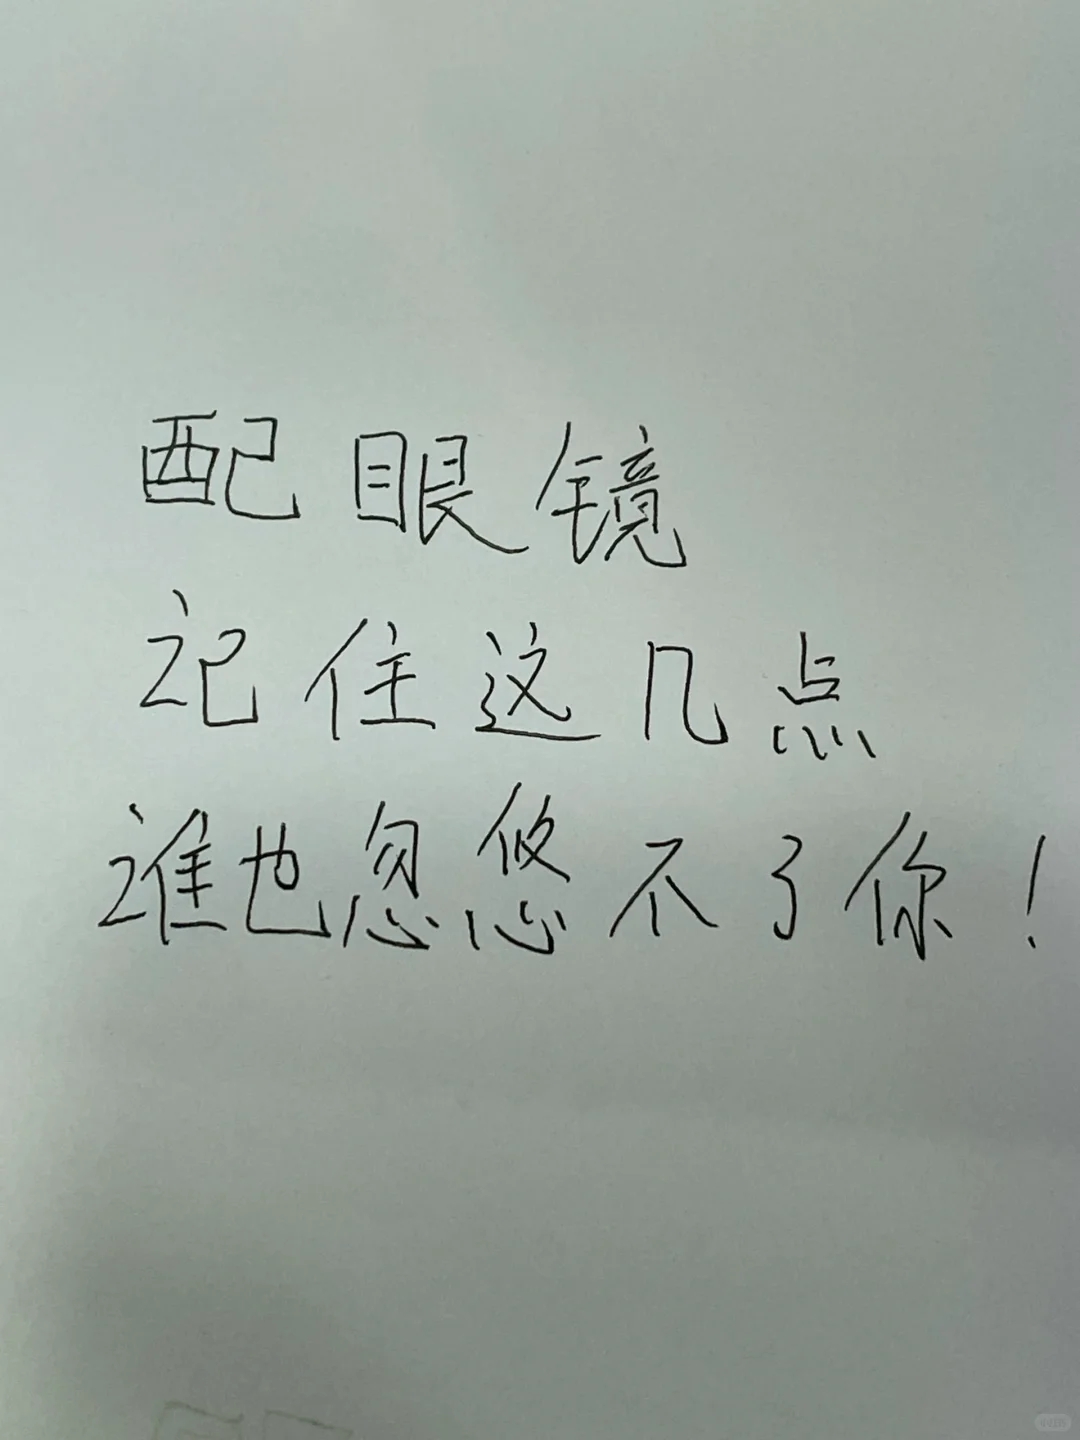 配眼镜
记住这几点
谁也忽悠不了你！